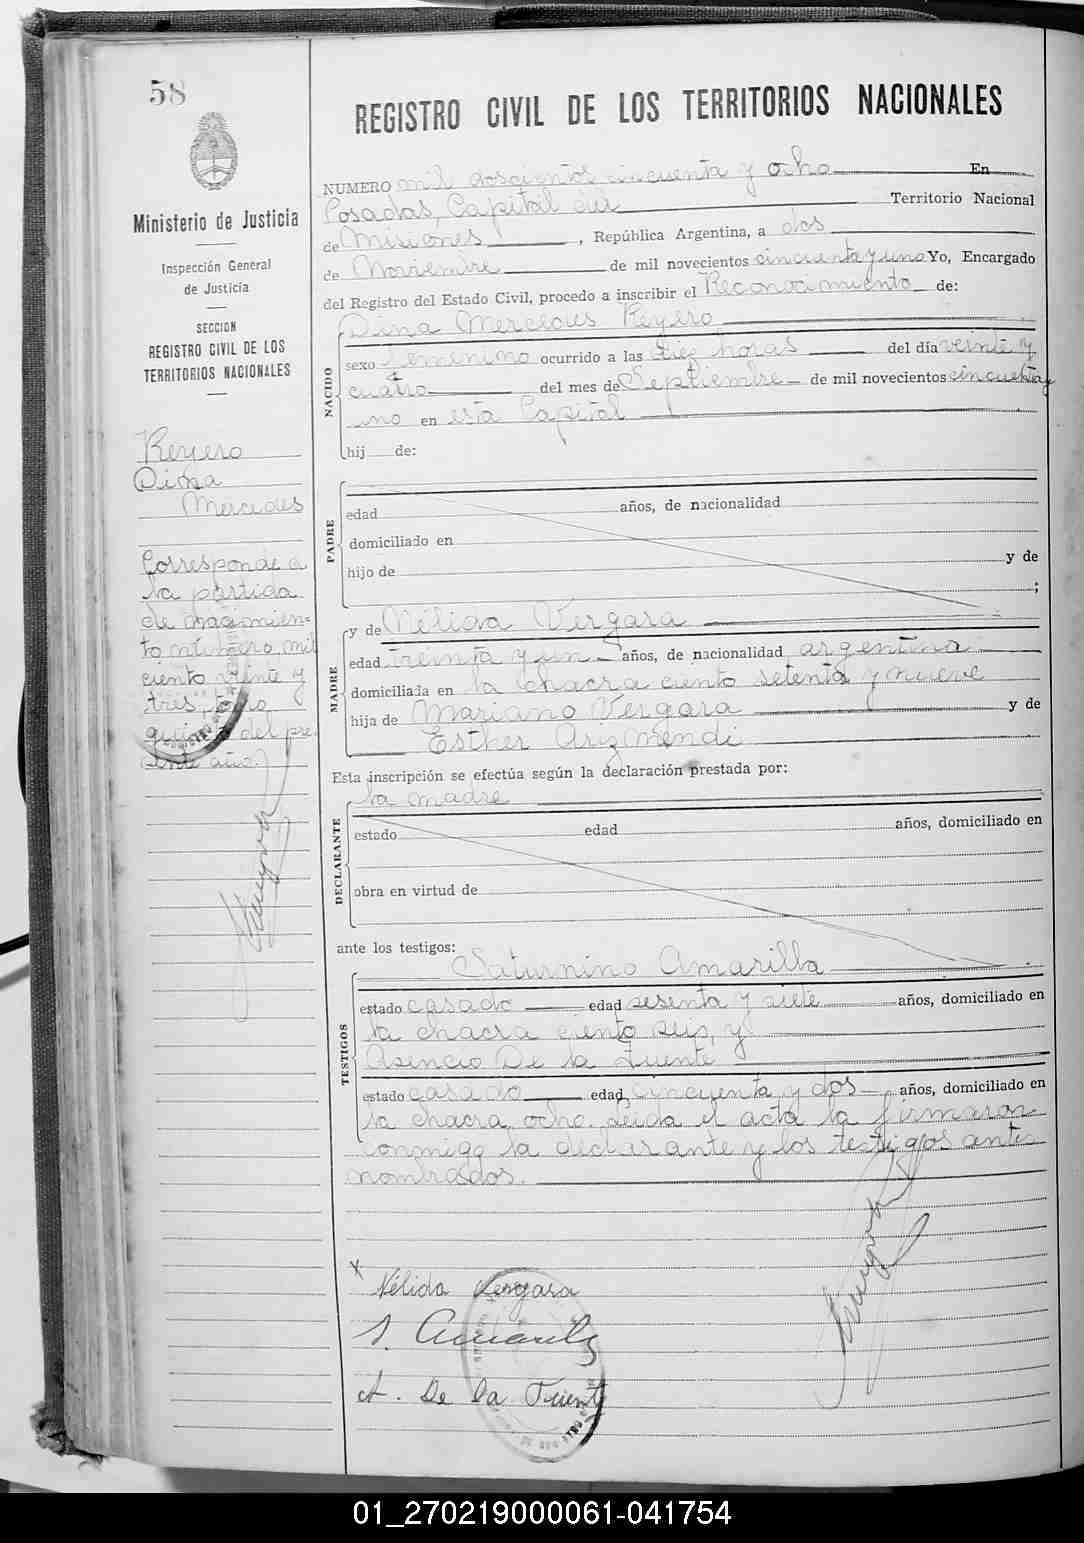 58
REGISTRO CIVIL DE LOS TERRITORIOS NACIONALES
Ministerio de Justicia
Inspección General
de Justicia
SECCION
REGISTRO CIVIL DE LOS
TERRITORIOS NACIONALES
Reyero
Dina
Mercedes
Corresponde a
la partida
de nacimien=
to número mil
ciento veinte y
tres, tomo
del pre
sente año.
NUMERO mil doscientos cincuenta y ocho En
Posadas, Capital del Territorio Nacional
de Misiones, República Argentina, a dos
de Noviembre de mil novecientos cincuenta y uno Yo, Encargado
del Registro del Estado Civil, procedo a inscribir el Reconocimiento de:
Dina Mercedes Reyero
NACIDO
sexo femenino ocurrido a las diez horas del día veinte y
cuatro del mes de Septiembre de mil novecientos cincuenta y
uno en esta Capital
hij de:
PADRE
edad años, de nacionalidad
domiciliado en
hijo de y de
;
MADRE
y de Nélida Vergara
edad treinta y un años, de nacionalidad argentina
domiciliada en la chacra ciento setenta y nueve
hija de Mariano Vergara y de
Esther Arizmendi
Esta inscripción se efectúa según la declaración prestada por:
la madre
DECLARANTE
estado edad años, domiciliado en
obra en virtud de
ante los testigos:
Saturnino Amarilla
TESTIGOS
estado casado edad sesenta y siete años, domiciliado en
la chacra ciento seis, y
Asencio De la Fuente
estado casado edad cincuenta y dos años, domiciliado en
la chacra ocho. Leida el acta la firmaron
conmigo la declarante y los testigos antes
nombrados.
x
Nélida Vergara
S. Amarilla
A. De la Fuente
01_270219000061-041754